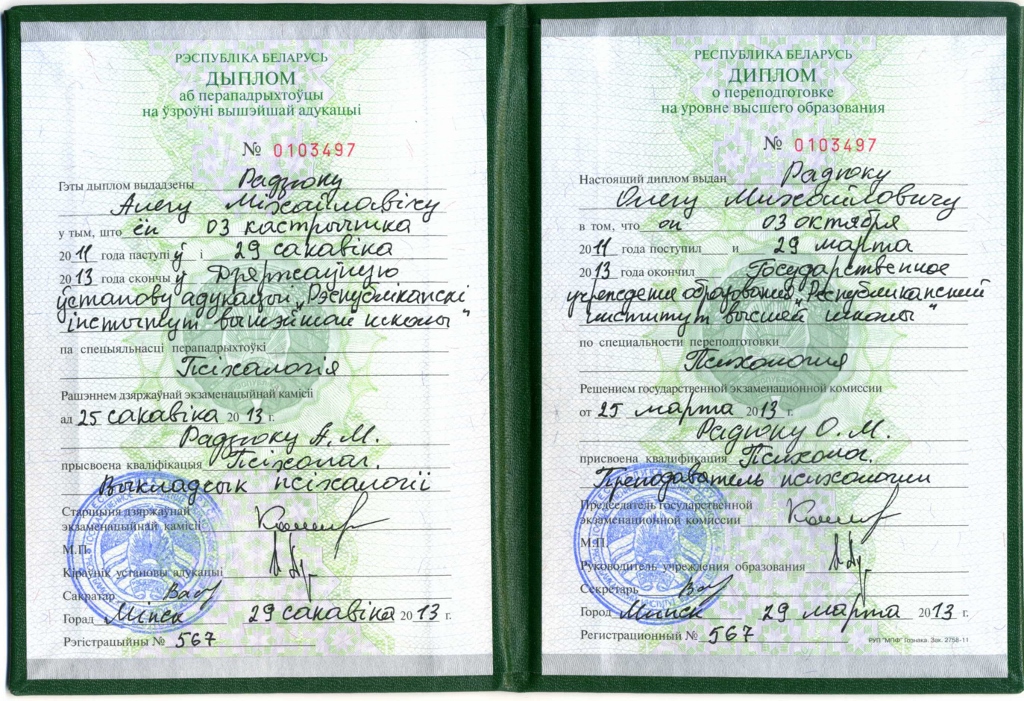 РЭСПУБЛІКА БЕЛАРУСЬ
ДЫПЛОМ
аб перападрыхтоўцы
на ўзроўні вышэйшай адукацыі
№ 0103497
Гэты дыплом выдадзены Радзюку
Алегу Міхайлавічу
у тым, што ён 03 кастрычніка
2011 года паступіў і 29 сакавіка
2013 года скончыў Дзяржаўную
ўстанову адукацыі „Рэспубліканскі
інстытут вышэйшай школы"
па спецыяльнасці перападрыхтоўкі
Псіхалогія
Рашэннем дзяржаўнай экзаменацыйнай камісіі
ад 25 сакавіка 2013 г.
Радзюку А. М.
прысвоена кваліфікацыя Псіхолаг.
Выкладчык псіхалогіі
Старшыня дзяржаўнай
экзаменацыйнай камісіі
М.П.
Кіраўнік установы адукацыі
Сакратар
Горад Мінск 29 сакавіка 2013 г.
Рэгістрацыйны № 567
РЕСПУБЛИКА БЕЛАРУСЬ
ДИПЛОМ
о переподготовке
на уровне высшего образования
№ 0103497
Настоящий диплом выдан Радюку
Олегу Михайловичу
в том, что он 03 октября
2011 года поступил и 29 марта
2013 года окончил Государственное
учреждение образования „Республиканский
институт высшей школы"
по специальности переподготовки
Психология
Решением государственной экзаменационной комиссии
от 25 марта 2013 г.
Радюку О. М.
присвоена квалификация Психолог.
Преподаватель психологии
Председатель государственной
экзаменационной комиссии
М.П.
Руководитель учреждения образования
Секретарь
Город Минск 29 марта 2013 г.
Регистрационный № 567
РУП "МПФ" Гознака. Зак. 2756-11